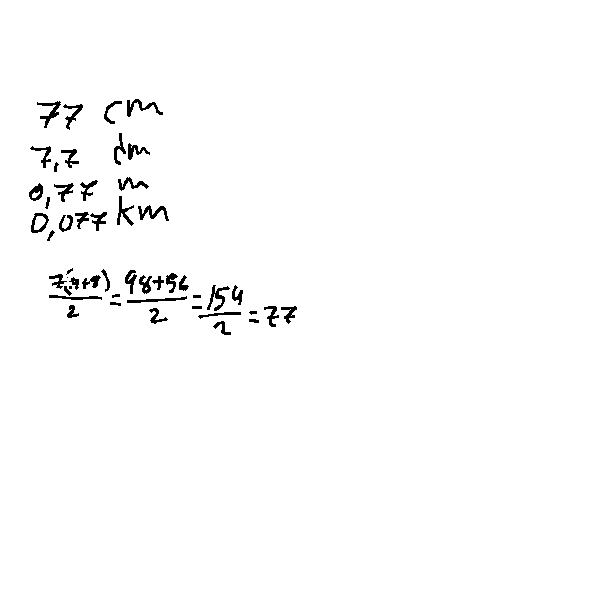 77 cm
7,7 dm
0,77 m
0,077 km
98+56/2 = 154/2 = 77